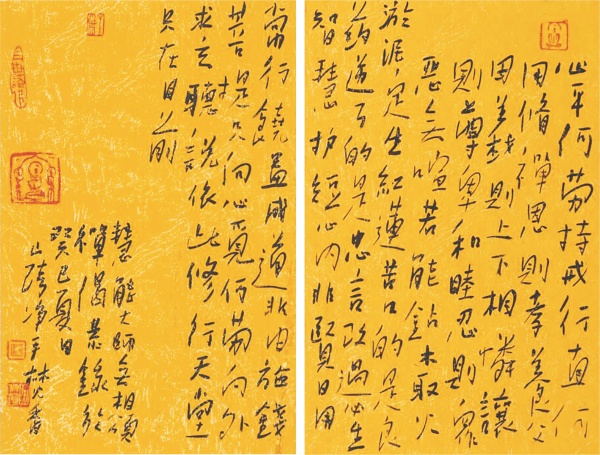 心平何劳持戒行直何
用脩禪恩則孝養父
母義則上下相憐讓
則尊卑和睦忍則眾
惡無諠若能鉆木取火
淤泥定生紅蓮苦口的是良
药逆耳的是忠言改過必生
智慧护短心内非賢日用
常行饒益成道非由施錢
菩提只向心覓何勞向外
求玄聽说依此修行天堂
只在目前
慧能大師無相頌
禪偈 錄於
癸巳夏日